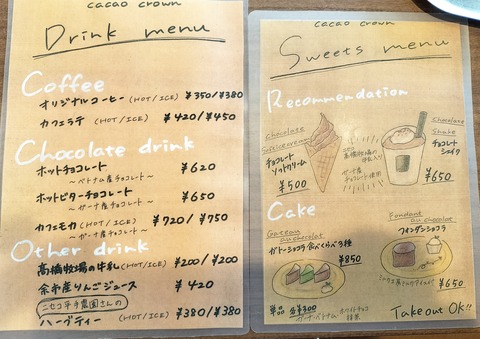 cacao crown
Drink menu
Coffee
オリジナルコーヒー (HOT/ICE) ¥350/¥380
カフェラテ (HOT/ICE) ¥420/¥450
Chocolate drink
ホットチョコレート ¥620
～ベトナム産チョコレート～
ホットビターチョコレート ¥650
～ガーナ産チョコレート～
カフェモカ (HOT/ICE) ¥720/¥750
～ガーナ産チョコレート～
Other drink
高橋牧場の牛乳 (HOT/ICE) ¥200/¥200
余市産りんごジュース ¥420
ニセコ平手農園さんの
ハーブティー (HOT/ICE) ¥380/¥380
cacao crown
Sweets menu
Recommendation
Chocolate
Softicecream
チョコレート
ソフトクリーム
¥500
高橋牧場の
牛乳入り
ガーナ産
チョコレート使用
Chocolate
Shake
チョコレート
シェイク
¥650
Cake
Gateau
au chocolat
ガトーショコラ 食べくらべ3種
¥850
単品 各¥300
ガーナ・ベトナム・ホワイトチョコ
抹茶
Fondant
au chocolat
フォンダンショコラ
¥650
Take out OK!!